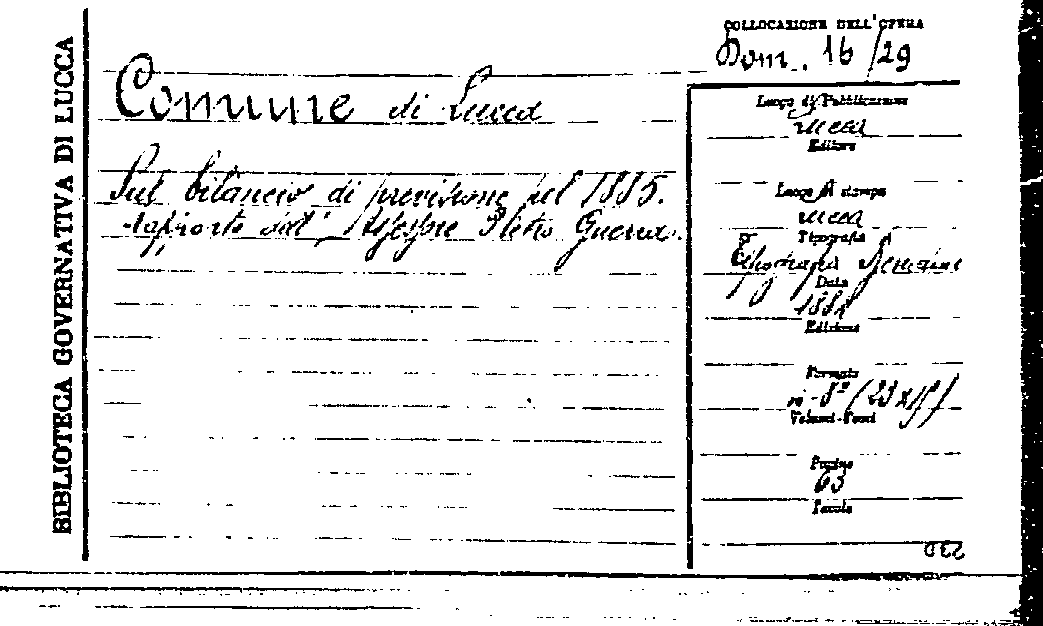 BIBLIOTECA GOVERNATIVA DI LUCCA
COLLOCAZIONE DELL'OPERA
Dom. 16/29
Comune di Lucca
Sul bilancio di previsione pel 1885.
Rapporto dell' Assessore Pietro Guerra.
Luogo di Pubblicazione
Lucca
Editore
Luogo di stampa
Lucca
Tipografia
Tipografia
Data
Edizione
Formato
in-8°
Volumi-Tomi
Pagine
63
Tavole